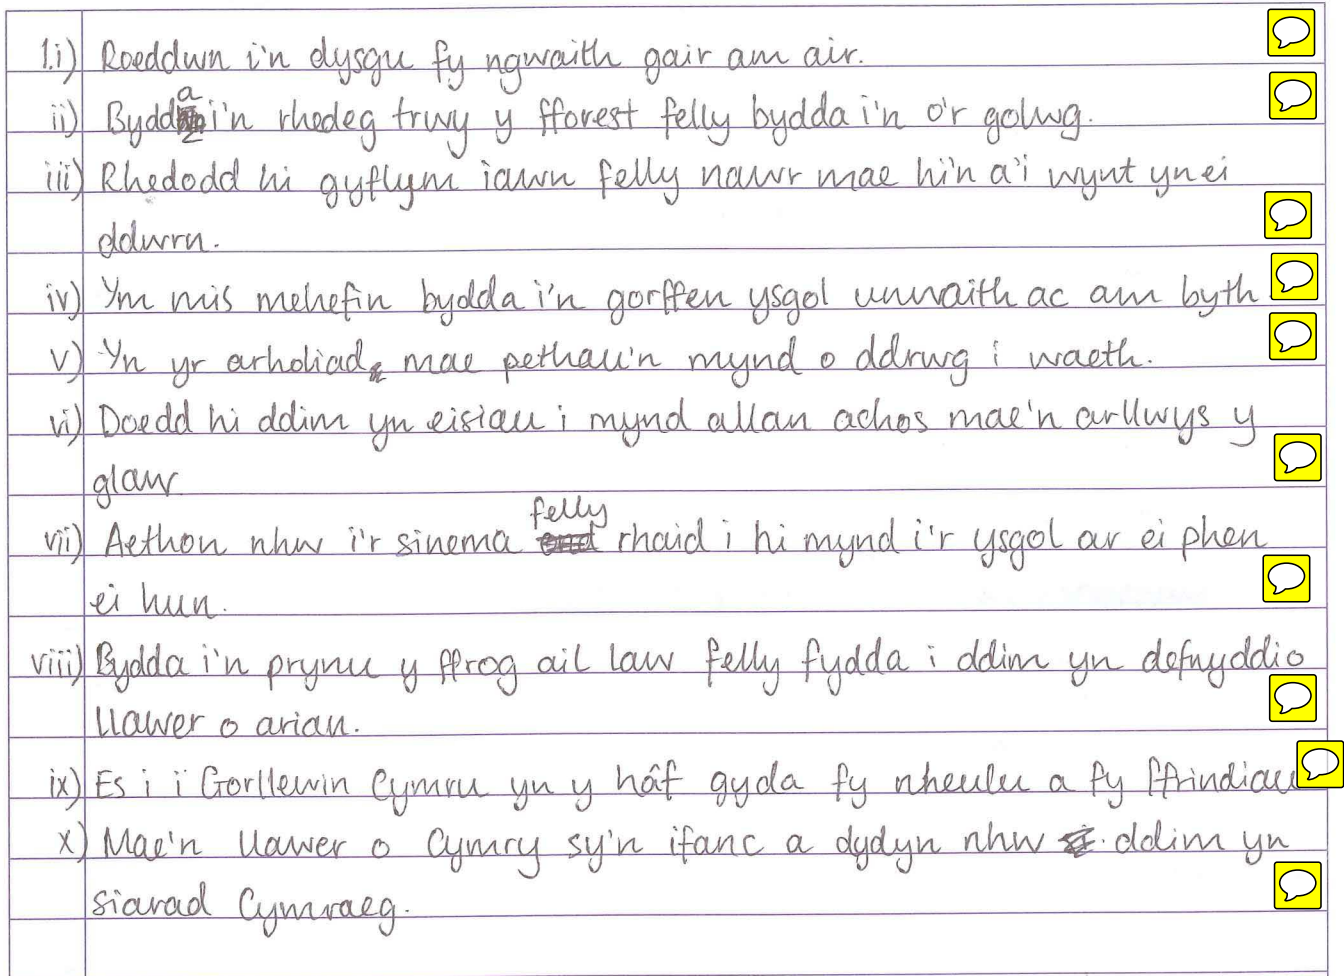 1.i) Roeddwn i'n dysgu fy ngwaith gair am air.
ii) Bydda i'n rhedeg trwy y fforest felly bydda i'n o'r golwg.
iii) Rhedodd hi gyflym iawn felly nawr mae hi'n a'i wynt yn ei
ddwrn.
iv) Ym mis mehefin bydda i'n gorffen ysgol unwaith ac am byth
v) Yn yr arholiad, mae pethau'n mynd o ddrwg i waeth.
vi) Doedd hi ddim yn eisiau i mynd allan achos mae'n arllwys y
glaw
vii) Aethon nhw i'r sinema felly rhaid i hi mynd i'r ysgol ar ei phen
ei hun.
viii) Bydda i'n prynu y ffrog ail law felly fydda i ddim yn defnyddio
llawer o arian.
ix) Es i i Gorllewin Cymru yn y hâf gyda fy nheulu a fy ffrindiau
x) Mae'n llawer o Cymry sy'n ifanc a dydyn nhw ddim yn
siarad Cymraeg.